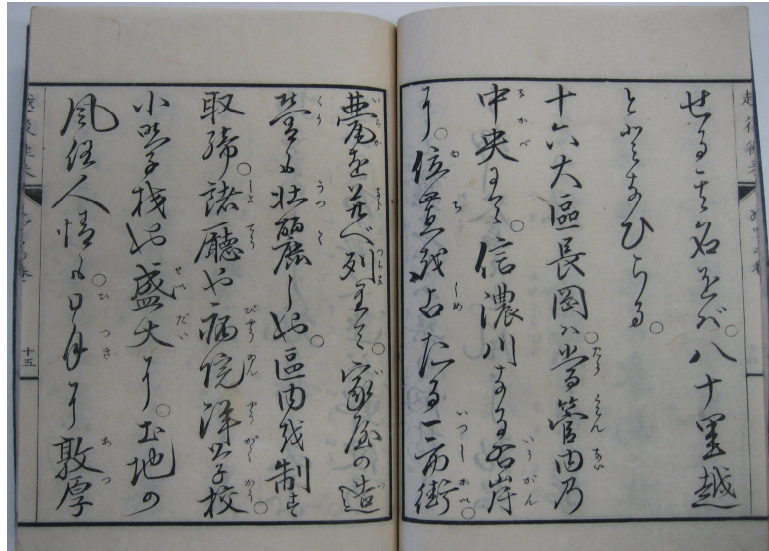 せる其名をバ。八十里越
となひける。
十六大區長岡ハ。當管内乃
中央にて。信濃川なる右岸
に。位置を占たる一市街。
甍を並べ列ねて。家屋の造
營も壮麗しや。區内を制す
取締。諸廳や病院洋学校。
小學校や盛大に。土地の
風俗人情も。日月に敦厚
十五